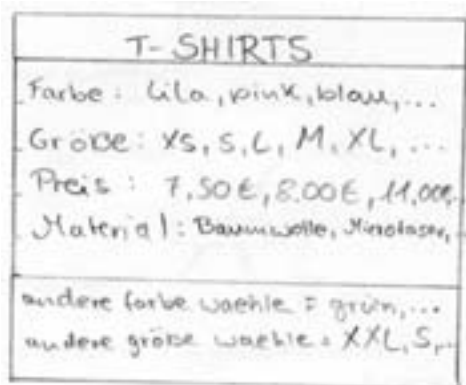 T-SHIRTS
Farbe: Lila, pink, blau, ...
Größe: XS, S, L, M, XL, ...
Preis: 7,50€, 8.00€, 11,00€
Material: Baumwolle,
andere farbe waehle = grün, ...
andere größe waehle = XXL, S, ..